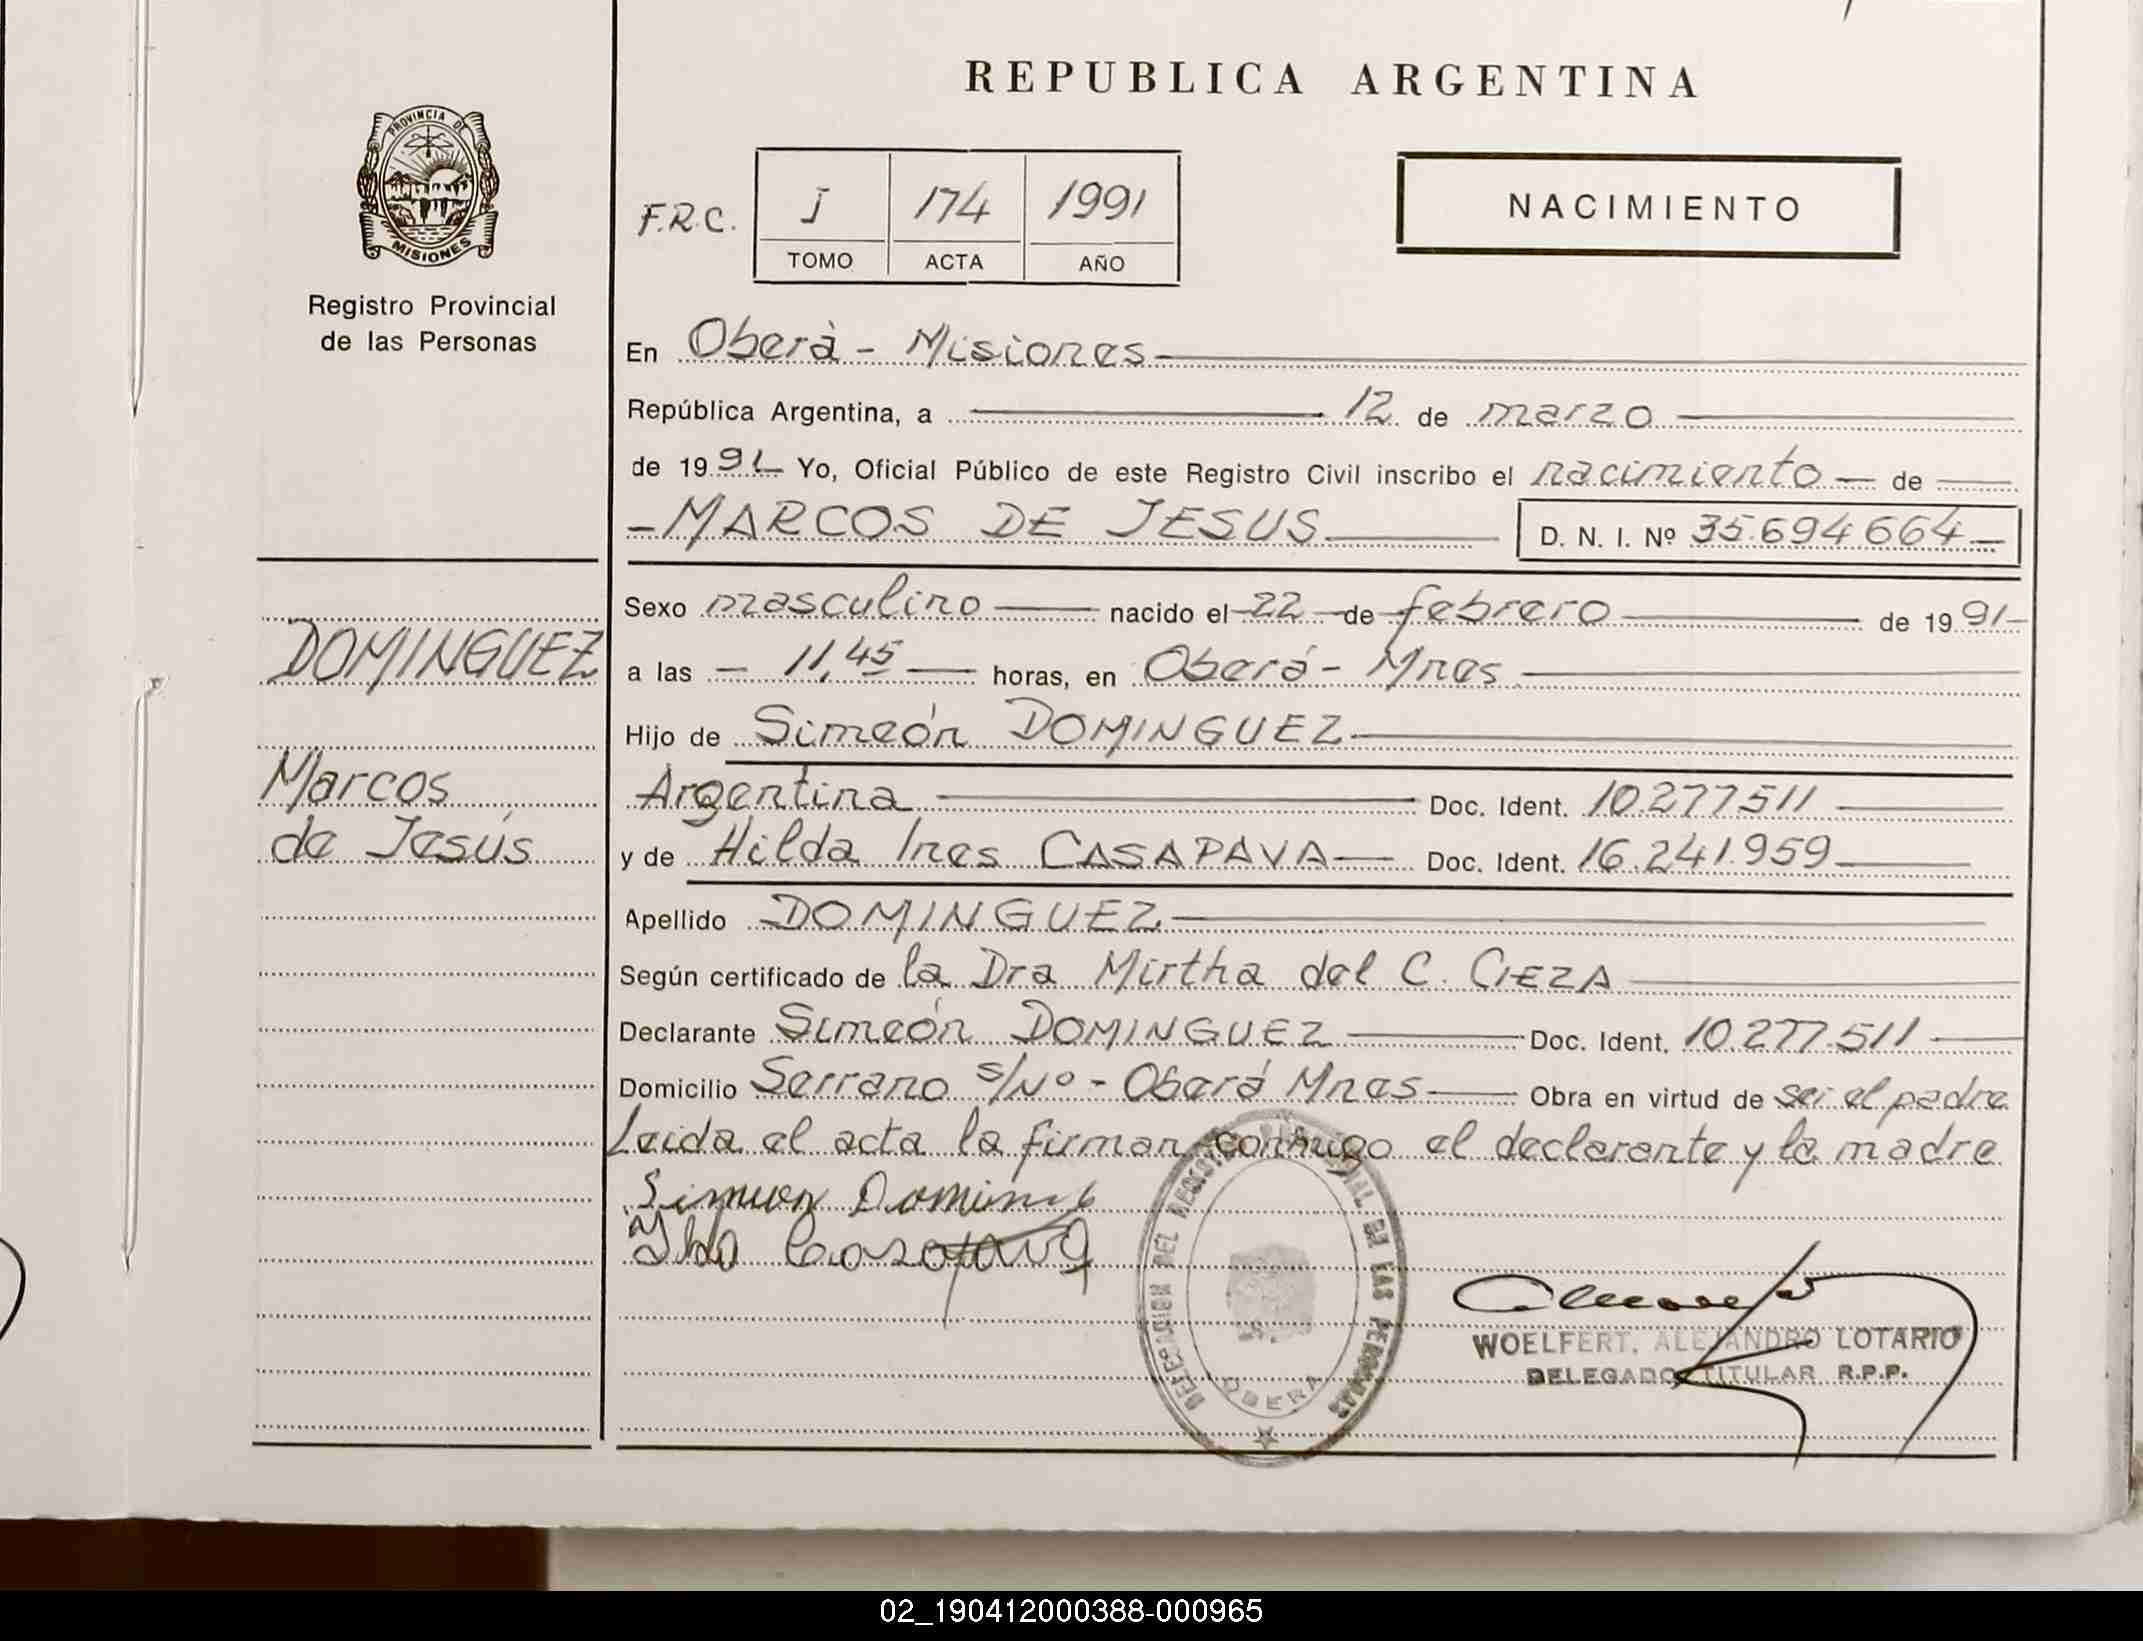 REPUBLICA ARGENTINA
PROVINCIA DE
MISIONES
Registro Provincial
de las Personas
F.R.C. J 174 1991
TOMO ACTA AÑO
NACIMIENTO
En Oberà - Misiones
República Argentina, a 12 de marzo
de 1991 Yo, Oficial Público de este Registro Civil inscribo el nacimiento de
MARCOS DE JESUS D. N. I. Nº 35.694.664
DOMINGUEZ
Marcos
de Jesús
Sexo masculino nacido el 22 de febrero de 1991
a las 11,45 horas, en Oberá - Mnes
Hijo de Simeón DOMINGUEZ
Argentina Doc. Ident. 10.277511
y de Hilda Ines CASAPAVA Doc. Ident. 16.241.959
Apellido DOMINGUEZ
Según certificado de la Dra Mirtha del C. CIEZA
Declarante Simeón DOMINGUEZ Doc. Ident. 10.277.511
Domicilio Serrano s/Nº - Oberá Mnes Obra en virtud de sei el padre
Leida el acta la firman conmigo el declarante y la madre
Simeon
DELEGACION DEL REGISTRO PROVINCIAL DE LAS PERSONAS
OBERA
WOELFERT, ALEJANDRO LOTARIO
DELEGADO TITULAR R.P.P.
02_190412000388-000965